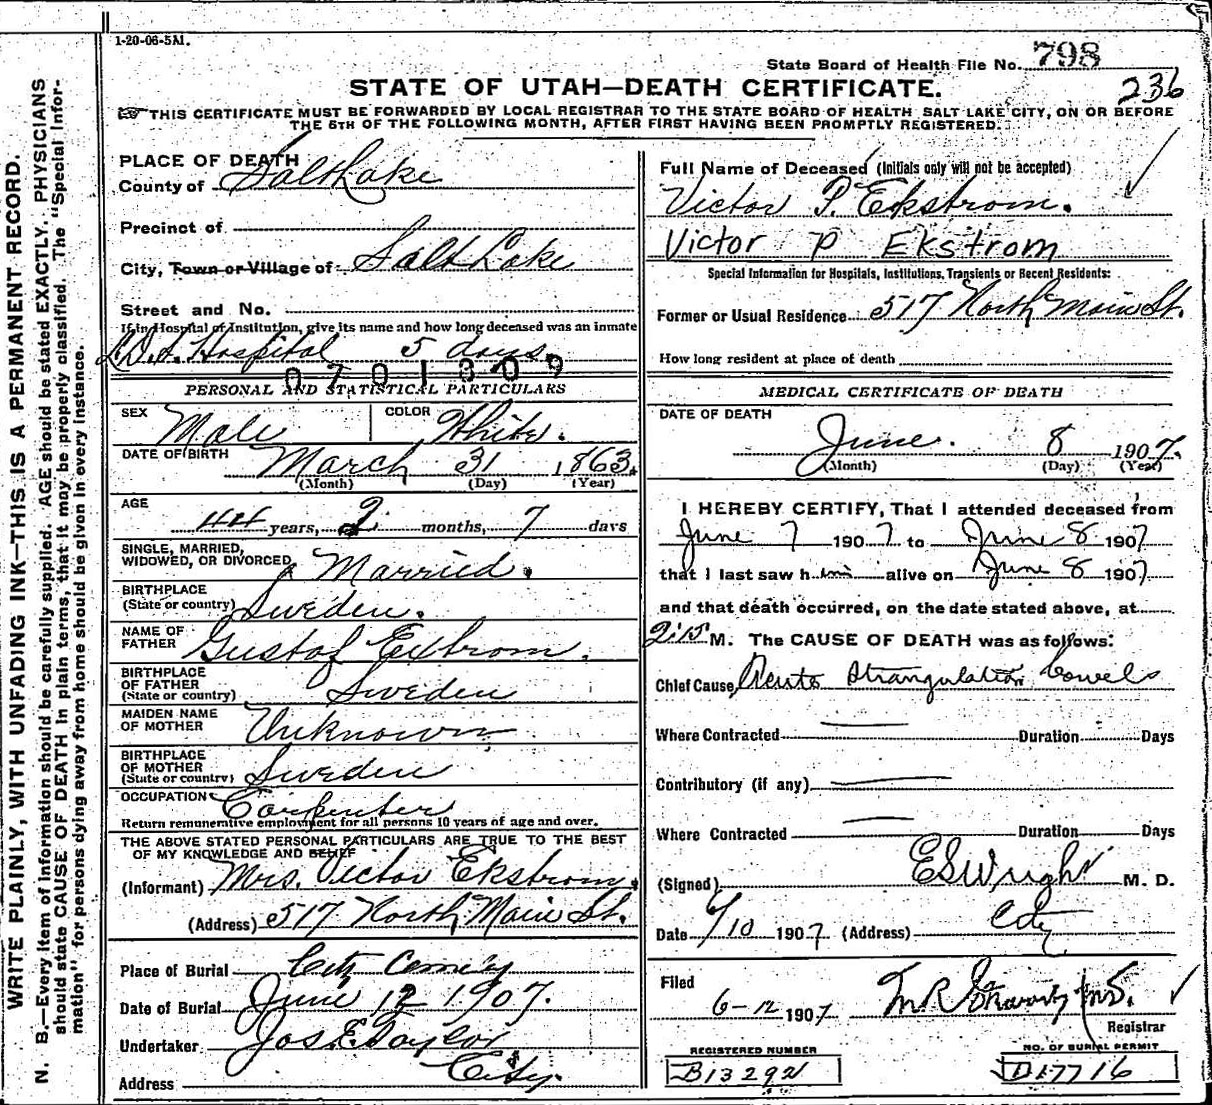 1-20-06-5M.
State Board of Health File No. 798
236
STATE OF UTAH—DEATH CERTIFICATE.
THIS CERTIFICATE MUST BE FORWARDED BY LOCAL REGISTRAR TO THE STATE BOARD OF HEALTH SALT LAKE CITY, ON OR BEFORE
THE 5TH OF THE FOLLOWING MONTH, AFTER FIRST HAVING BEEN PROMPTLY REGISTERED.
WRITE PLAINLY, WITH UNFADING INK—THIS IS A PERMANENT RECORD.
N. B.—Every item of information should be carefully supplied. AGE should be stated EXACTLY. PHYSICIANS
should state CAUSE OF DEATH in plain terms, that it may be properly classified. The "Special Infor-
mation" for persons dying away from home should be given in every instance.
PLACE OF DEATH
County of Salt Lake
Precinct of
City, Town or Village of Salt Lake
Street and No.
If in Hospital of Institution, give its name and how long deceased was an inmate
L.D.S. Hospital 5 days
0701309
PERSONAL AND STATISTICAL PARTICULARS
SEX Male COLOR White.
DATE OF BIRTH March 31 1863.
(Month) (Day) (Year)
AGE 44 years, 2 months, 7 days
SINGLE, MARRIED,
WIDOWED, OR DIVORCED Married.
BIRTHPLACE
(State or country) Sweden.
NAME OF
FATHER Gustof Extrom.
BIRTHPLACE
OF FATHER
(State or country) Sweden
MAIDEN NAME
OF MOTHER Unknown
BIRTHPLACE
OF MOTHER
(State or country) Sweden
OCCUPATION Carpenter
Return remunerative employment for all persons 10 years of age and over.
THE ABOVE STATED PERSONAL PARTICULARS ARE TRUE TO THE BEST
OF MY KNOWLEDGE AND BELIEF
(Informant) Mrs. Victor Ekstrom.
(Address) 517 North Main St.
Place of Burial City Cem'y
Date of Burial June 12 1907.
Undertaker Jos E. Taylor
Address City.
Full Name of Deceased (Initials only will not be accepted)
Victor P. Ekstrom.
Victor P Ekstrom
Special Information for Hospitals, Institutions, Transients or Recent Residents:
Former or Usual Residence 517 North Main St.
How long resident at place of death
MEDICAL CERTIFICATE OF DEATH
DATE OF DEATH
June. 8 1907.
(Month) (Day) (Year)
I HEREBY CERTIFY, That I attended deceased from
June 7 1907 to June 8 1907
that I last saw him alive on June 8 1907
and that death occurred, on the date stated above, at
2:15 M. The CAUSE OF DEATH was as follows:
Chief Cause Acute Strangulation bowels
Where Contracted Duration Days
Contributory (if any)
Where Contracted Duration Days
(Signed) E S Wright M. D.
Date 6/10 1907 (Address) City
Filed
6-12 1907 M R Stewart M.D.
Registrar
REGISTERED NUMBER
B13292
NO. OF BURIAL PERMIT
D17716